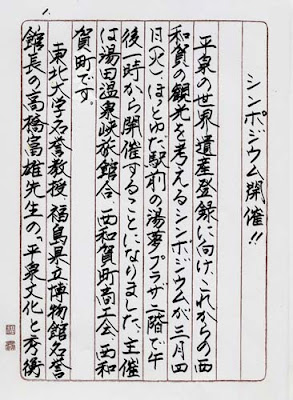 1.
シンポジウム開催!!
平泉の世界遺産登録に向け、これからの西
和賀の観光を考えるシンポジウムが三月四
日(火)ほっとゆだ駅前の湯夢プラザ二階で午
後一時から開催することになりました、主催
は湯田温泉峡旅館合、西和賀町商工会、西和
賀町です。
東北大学名誉教授、福島県立博物館名誉
館長の高橋富雄先生の、平泉文化と秀衡